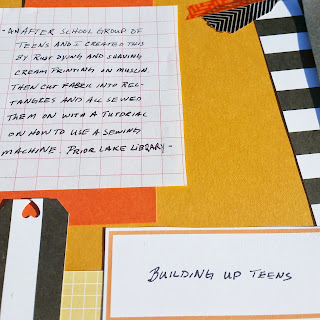 - AN AFTER SCHOOL GROUP OF
TEENS AND I CREATED THIS
BY RUST DYING AND SHAVING
CREAM PRINTING ON MUSLIN.
THEN CUT FABRIC INTO REC-
TANGLES AND ALL SEWED
THEM ON WITH A TUTORIAL
ON HOW TO USE A SEWING
MACHINE. PRIOR LAKE LIBRARY -
BUILDING UP TEENS